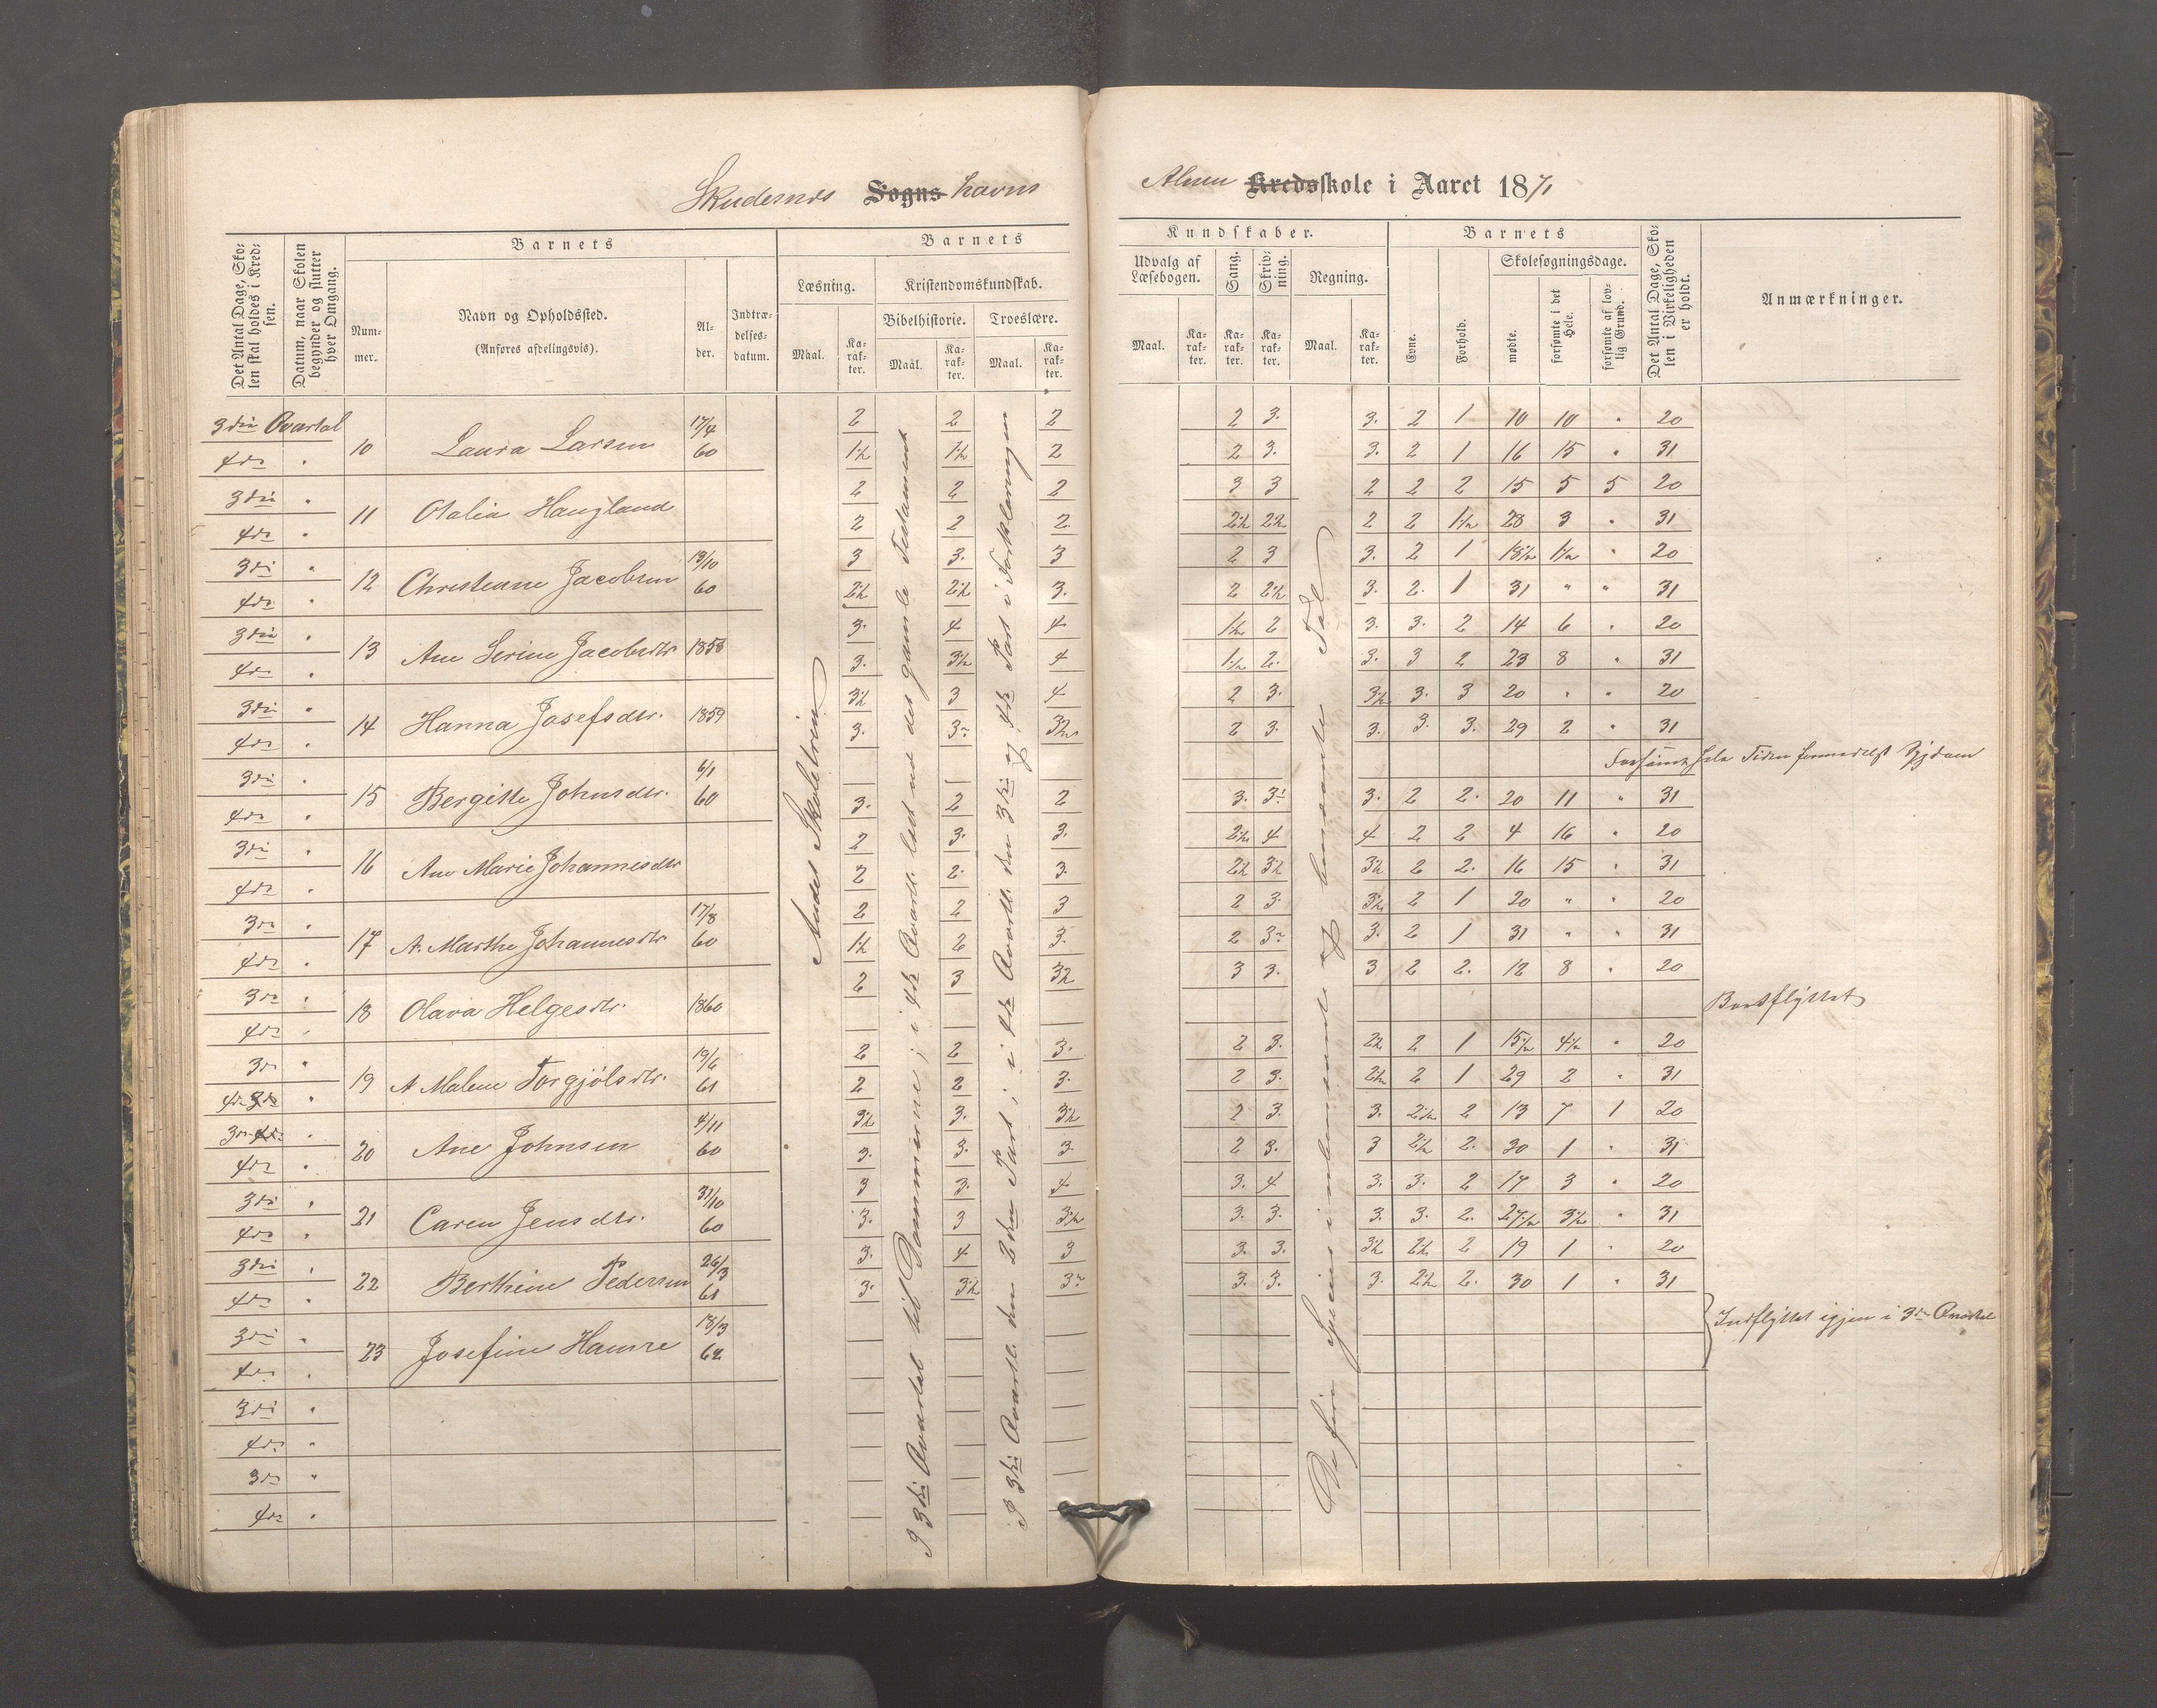 Skudernes Sogns havns
Almen Kredsskole i Aaret 1871
Det Antal Dage, Skolen skal holdes i Kredsen.
Datum, naar Skolen begynder og slutter hver Omgang.
Barnets
Nummer.
Navn og Opholdssted.
(Anføres afdelingsvis).
Alder.
Indtrædelsesdatum.
Barnets
Læsning.
Kristendomskundskab.
Bibelhistorie.
Troeslære.
Maal.
Karakter.
Maal.
Karakter.
Maal.
Karakter.
Kundskaber.
Udvalg af Læsebogen.
Sang.
Skrivning.
Regning.
Maal.
Karakter.
Karakter.
Karakter.
Maal.
Karakter.
Barnets
Evne.
Forhold.
Skolesøgningsdage.
mødte.
forsømte i det Hele.
forsømte af lovlig Grund.
Det Antal Dage, Skolen i Virkeligheden er holdt.
Anmærkninger.
3die Qvartal 10 Laura Larsen 17/4 60 2 2 2 2 3. 3. 2 1 10 10 " 20
4de " 1½ 1½ 2 2 3. 3. 2 1 16 15 " 31
3die " 11 Olalia Haugland 2 2 2 3 3 2 2 2 15 5 5 20
4de " 2 2 2. 2½ 2½ 2 2 1½ 28 3 " 31
3die " 12 Christiane Jacobsen 13/10 60 3 3. 3 2 3 3. 2 1 18½ 1½ " 20
4de " 2½ 2½ 3. 2 2½ 3. 2. 1 31 " " 31
3die " 13 Ane Serine Jacobsdtr 1858 3. 4 4 1½ 2 3. 3. 2 14 6 " 20
4de " 3. 3½ 4 1½ 2. 3. 3 2 23 8 " 31
3die " 14 Hanna Josefsdtr. 1859 3½ 3 4 2 3. 3½ 3. 3 20 " " 20
4de " 3. 3. 3½ 2 3. 3. 3. 3. 29 2 " 31
3die " 15 Bergitte Johnsdtr. 6/1 60 Forsømt hele Tiden formedelst Sygdom
4de " 3. 2 2 3. 3. 3. 2 2. 20 11 " 31
3die " 16 Ane Marie Johannesdtr 2 3. 3. 2½ 4 4 2 2 4 16 " 20
4de " 2 2. 3. 2½ 3½ 3½ 2 2. 16 15 " 31
3die " 17 A. Marthe Johannesdtr 17/8 60 2 2 3 2 3. 3½ 2 1 20 " " 20
4de " 1½ 2 3. 2 3. 3. 2 1 31 " " 31
3die " 18 Olava Helgesdtr. 1860 2 3 3½ 3 3. 3 2 2. 12 8 " 20
4de " Bortflyttet
3die " 19 A Malene Torgjølsdtr. 19/6 61 2 2 3. 2 3. 2½ 2 1 15½ 4½ " 20
4de 3de " 2 2 3. 2 3. 2½ 2 1 29 2 " 31
3die 4de " 20 Ane Johnsen 4/11 60 3½ 3. 3½ 2 3. 3. 2½ 2 13 7 1 20
4de " 3. 3. 3. 2 3. 3 2½ 2. 30 1 " 31
3die " 21 Caren Jensdtr. 31/10 60 3 3. 4 3. 4 3. 3. 2 17 3 " 20
4de " 3. 3 3½ 3. 3. 3. 3. 2. 27½ 3½ " 31
3die " 22 Berthine Pedersen 26/3 61 3. 4 3 3. 3. 3½ 2½ 2 19 1 " 20
4de " 3. 3½ 3. 3. 3. 3. 2½ 2. 30 1 " 31
3die " 23 Josefine Hamre 18/3 62 Indflyttet igjen i 3die Qvartal
4de "
3die "
4de "
3die "
4de "
Andet Skoletrin
I 3die Qvartal til Dommerne; i 4de Qvartl. læst ud det gamle Testament
I 3die Qvartl. den 2den Part; i 4de Qvartl. den 3die og 4de Part i Forklaringen
De fire Species i ubenævnte og benævnte Tal